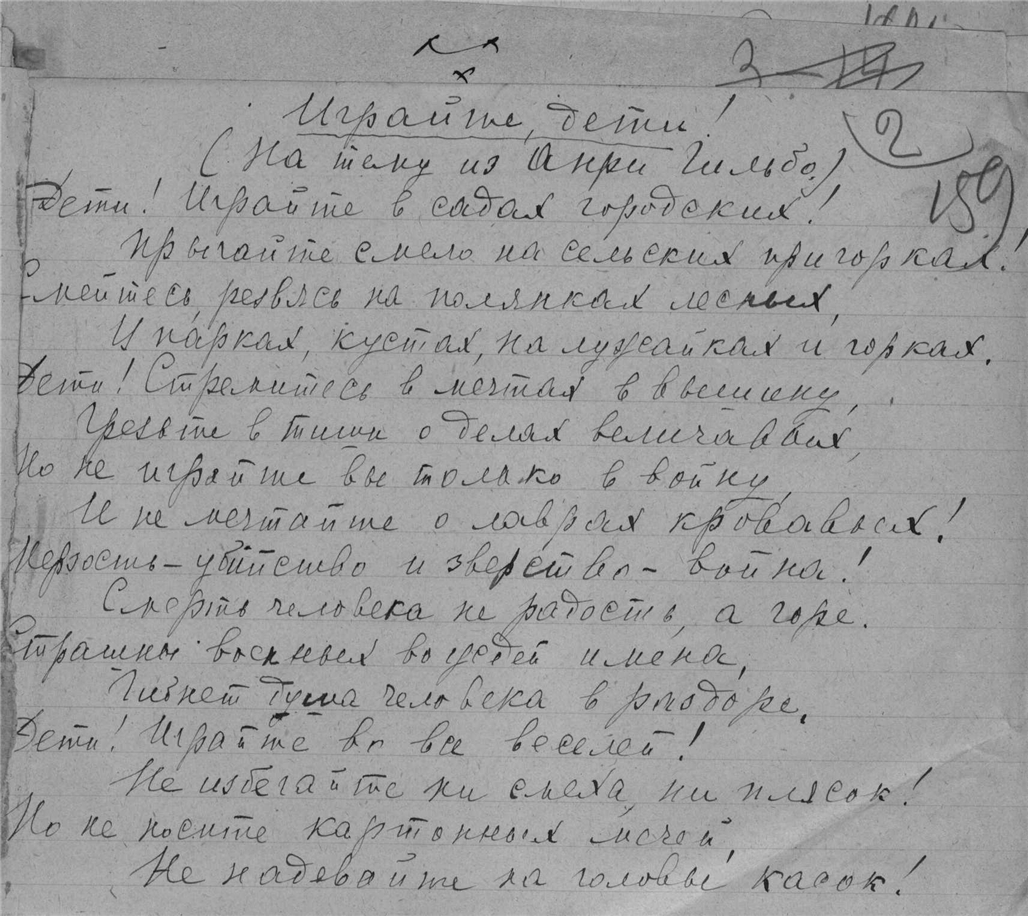 3 – 14
Играйте, дети!
2
(На тему из Анри Гильбо)
159
Дети! Играйте в садах городских!
Прыгайте смело на сельских пригорках!
Смейтесь, резвясь на полянках лесных,
И парках, кустах, на лужайках и горках.
Дети! Стремитесь в мечтах в вышину,
Грезьте в тиши о делах величавых,
Но не играйте вы только в войну,
И не мечтайте о лаврах кровавых!
Мерзость – убийство и зверство – война!
Смерть человека не радость, а горе.
Страшны военных вождей имена,
Гибнет душа человека в раздоре.
Дети! Играйте во все веселей!
Не избегайте ни смеха, ни плясок!
Но не носите картонных мечей,
Не надевайте на головы касок!